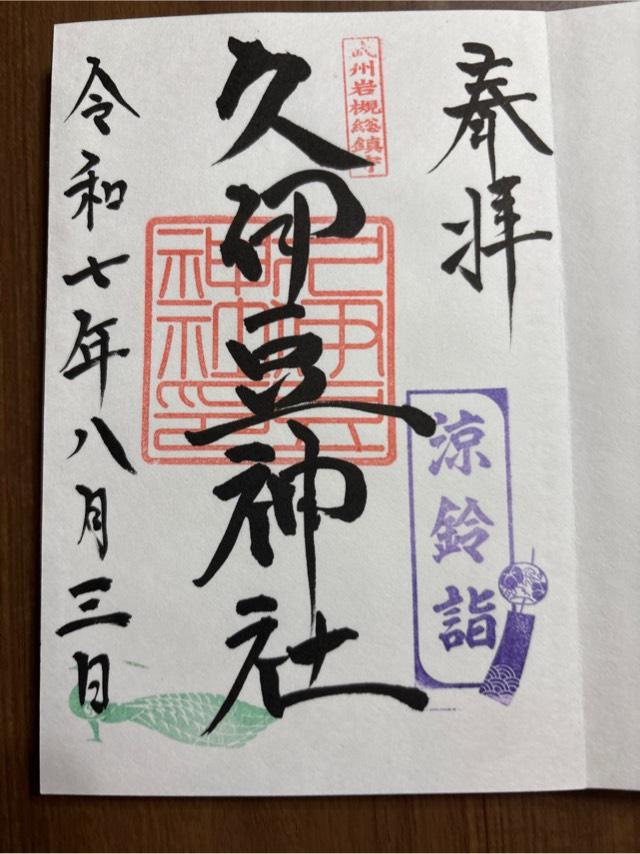 奉拝
武州岩槻総鎮守
涼鈴詣
久伊豆神社
久伊豆
神社印
令和七年八月三日